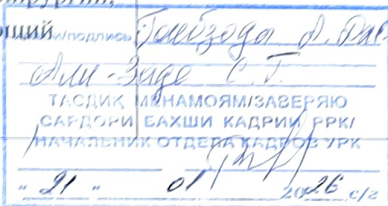 щий имзо/подпись Гоибзода А. Рав
Али-Заде С.Г.
ТАСДИҚ МЕНАМОЯМ/ЗАВЕРЯЮ
САРДОРИ БАХШИ КАДРИИ РРК/
НАЧАЛЬНИК ОТДЕЛА КАДРОВ УРК
"21" 01 2026 с/г